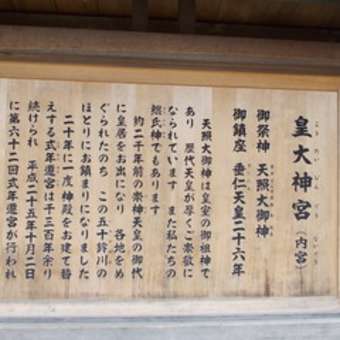 皇大神宮（内宮）
こうたいじんぐう　ないくう
御祭神　天照大御神
御鎮座　垂仁天皇二十六年
天照大御神は皇室の御祖神で
あり　歴代天皇が厚くご崇敬に
なられています　また私たちの
総氏神でもあります
約二千年前の崇神天皇の御代
に皇居をお出になり　各地をめ
ぐられたのち　この五十鈴川の
ほとりにお鎮まりになりました
二十年に一度神殿をお建て替
えする式年遷宮は千三百年余り
続けられ　平成二十五年十月二日
に第六十二回式年遷宮が行われ